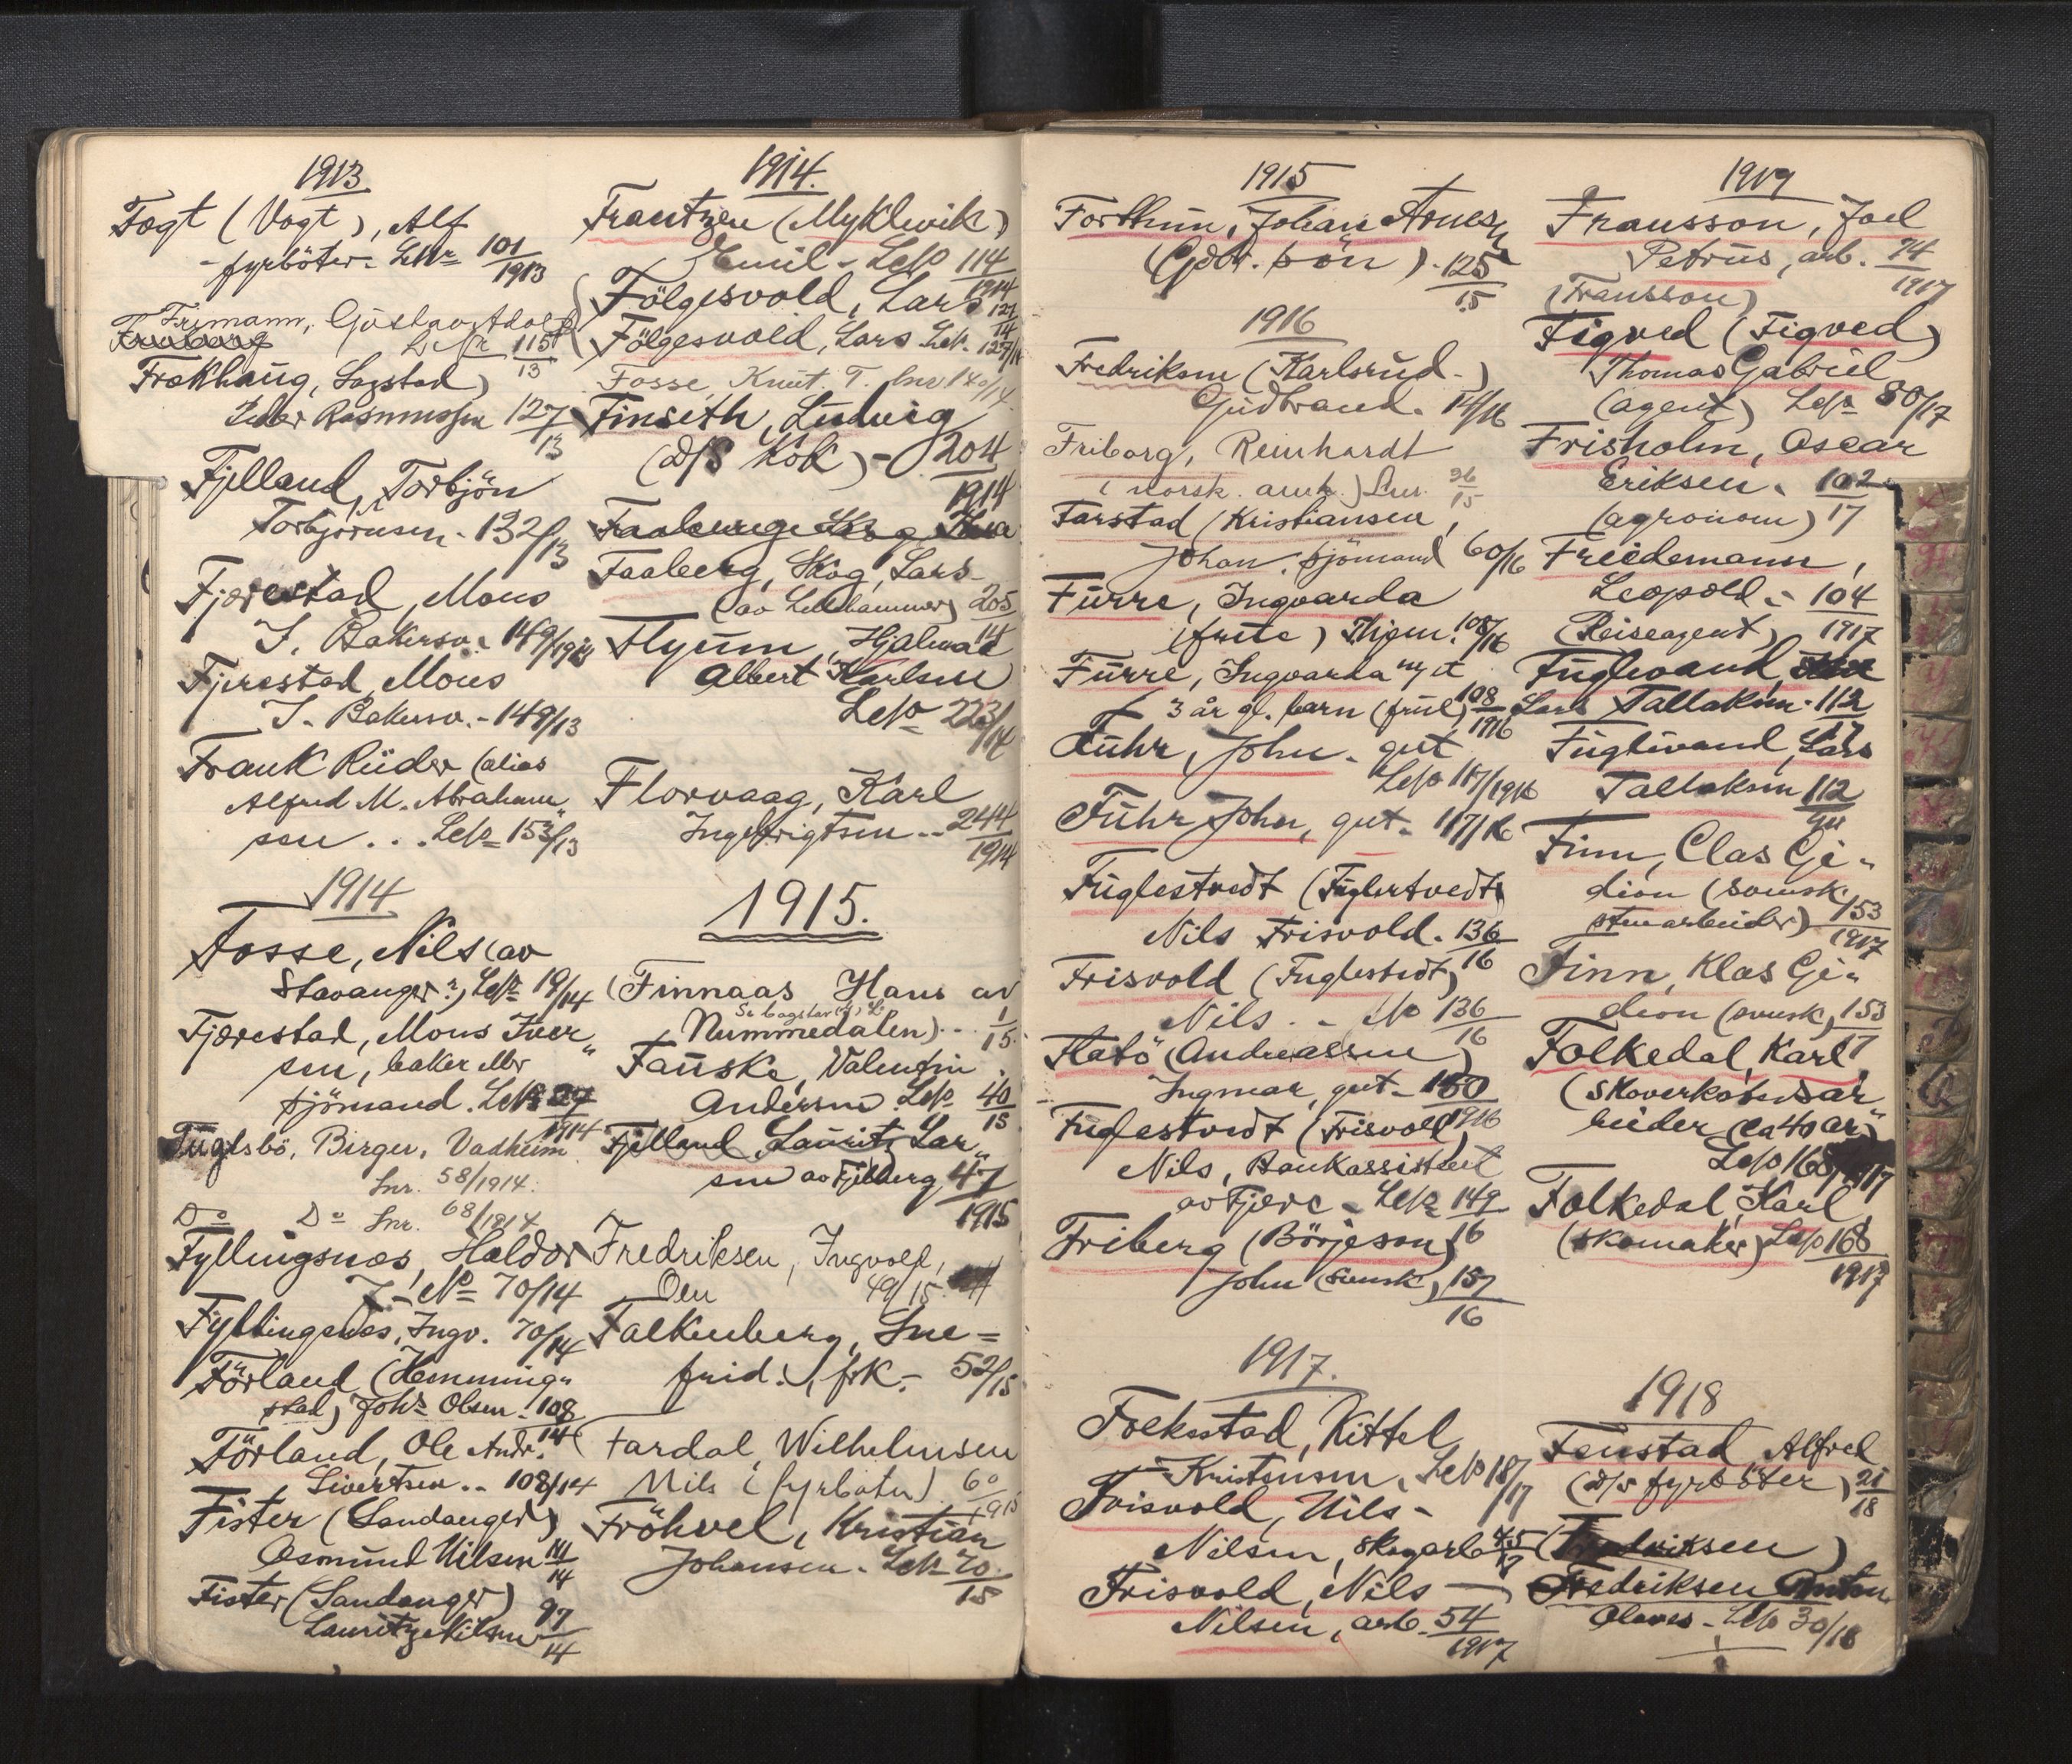 1913
Fogt (Vogt), Alf
- fyrböter - LNr 101/1913
Frimann, Gustav Adolf
LNr 115/13
Frøkhaug, Sagstad)
Peder Rasmussen 127/13
Fjelland, Torbjön
Torbjörnsen - 132/13
Fjærestad, Mons
I. Bakersv. 149/1913
Fjerestad, Mons
I. Bakersv. - 149/13
Frank Rüder (alias
Alfred M. Abraham„
sen ... LNo 153/13
1914
Fosse, Nils (av
Stavanger?) LNr 19/14
Fjærestad, Mons Iver„
sen, baker eller
sjömand. LNr 29/1914
Fuglsbö, Birger, Vadheim
Lnr. 58/1914.
Do Do Lnr. 68/1914
Fyllingsnæs, Haldor
J. No 70/14
Fyllingsnes, Ingv. 70/14
Förland (Hemming„
stad) Johs Olsen. 108/14
Förland, Ole Andr.
Sivertsen .. 108/14
Fister (Sandanger)
Osmund Nilsen 111/14
Fister (Sandanger)
Lauritz Nilsen 97/14
1914.
Frantzen (Myklevik)
Emil - LNo 114/1914
Fölgesvold, Lars 127/14
Fölgesvold, Lars LNr. 127/14
Fosse, Knut. T. Lnr 140/14.
Finseth, Ludvig
(D/S Kok) - 204/1914
Faaberg, Skog, Lars
(av Lillehammer) 205/14
Flyum, Hjalmar
Albert Karlsen
LNo 223/14
Florvaag, Karl
Ingebrigtsen .. 244/1914
1915.
(Finnaas Hans av
Nummedalen) .. 1/15.
Fauske, Valentin
Andersen LNo 40/15
Fjelland, Lauritz Lar„
sen av Fjelberg 47/1915
Fredriksen, Ingvolf,
Oen 49/15.
Falkenberg, Sne=
frid., frk. - 52/15
Fardal, Wilhelmsen
Nils (fyrböter) 60/1915
Fröhvel, Kristian
Johansen. LNr 70/15
1915
Forthun, Johan Arnesen
(Gdbr. sön). 125/15
1916
Fredriksen (Karlsrud-)
Gudbrand. 14/16
Friborg, Reinhardt
(norsk. amk.) Lnr. 96/15
Farstad (Kristiansen,
Johan, sjömand 60/16
Furre, Ingvarda
(frue) Thjem. 108/16
Furre, Ingvarda m/ et
3 år gl. barn (frue) 108/1916
Fuhr, John - gut
LNo 117/1916
Fuhr John, gut - 117/16
Fuglestvedt (Fuglertvedt)
Nils Frisvold. 136/16
Frisvold (Fuglestedt)
Nils. - No 136/16
Flatö (Andreassen)
Ingmar, gut - 150/1916
Fuglestvedt (Frisvold)
Nils, Bankassistent
av Fjære - LNr 149/16
Friberg (Börjeson)
John (svensk) 157/16
1917.
Folkestad, Kittel
Kristensen, LNo 18/17
Frisvold, Nils -
Nilsen, skogarb 45/17
Frisvold, Nils -
Nilsen, arb. 54/1917
1917
Fransson, Joel
Petrus, arb. 74/1917
(Fransson)
Figved (Figved)
Thomas Gabriel
(agent) LNo 80/17
Frisholm, Oscar
Eriksen. 102/17
(agronom)
Friedemann,
Leopold. - 104/1917
(Reiseagent)
Fuglvand,
Lars Tallaksen. 112/17
Fuglevand, Lars
Tallaksen 112
Finn, Clas Gi„
dion (svensk,
stenarbeider) 153/1917
Finn, Klas Gi„
dion (svensk) 153/17
Folkedal, Karl,
(Skoverkötsar
beider (ca 40 år)
LNo 168/17
Folkedal, Karl
(skomaker) LNo 168/1917
1918
Fenstad Alfred
(D/S fyrböter) 21/18
(Fredriksen)
Fredriksen Anton
Olaves - LNo 30/18